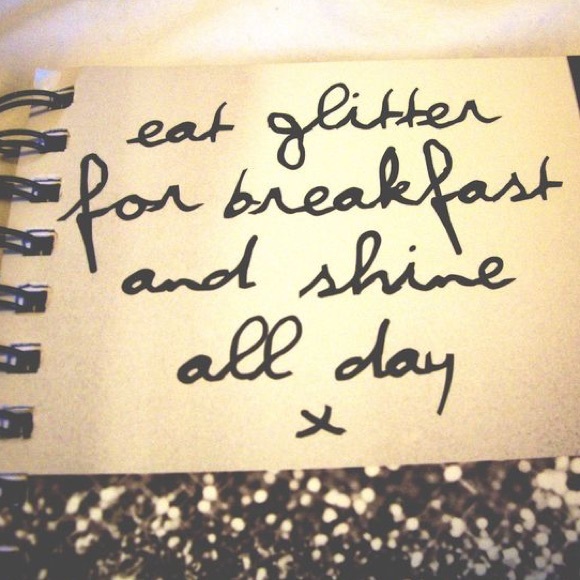 eat glitter
for breakfast
and shine
all day
x